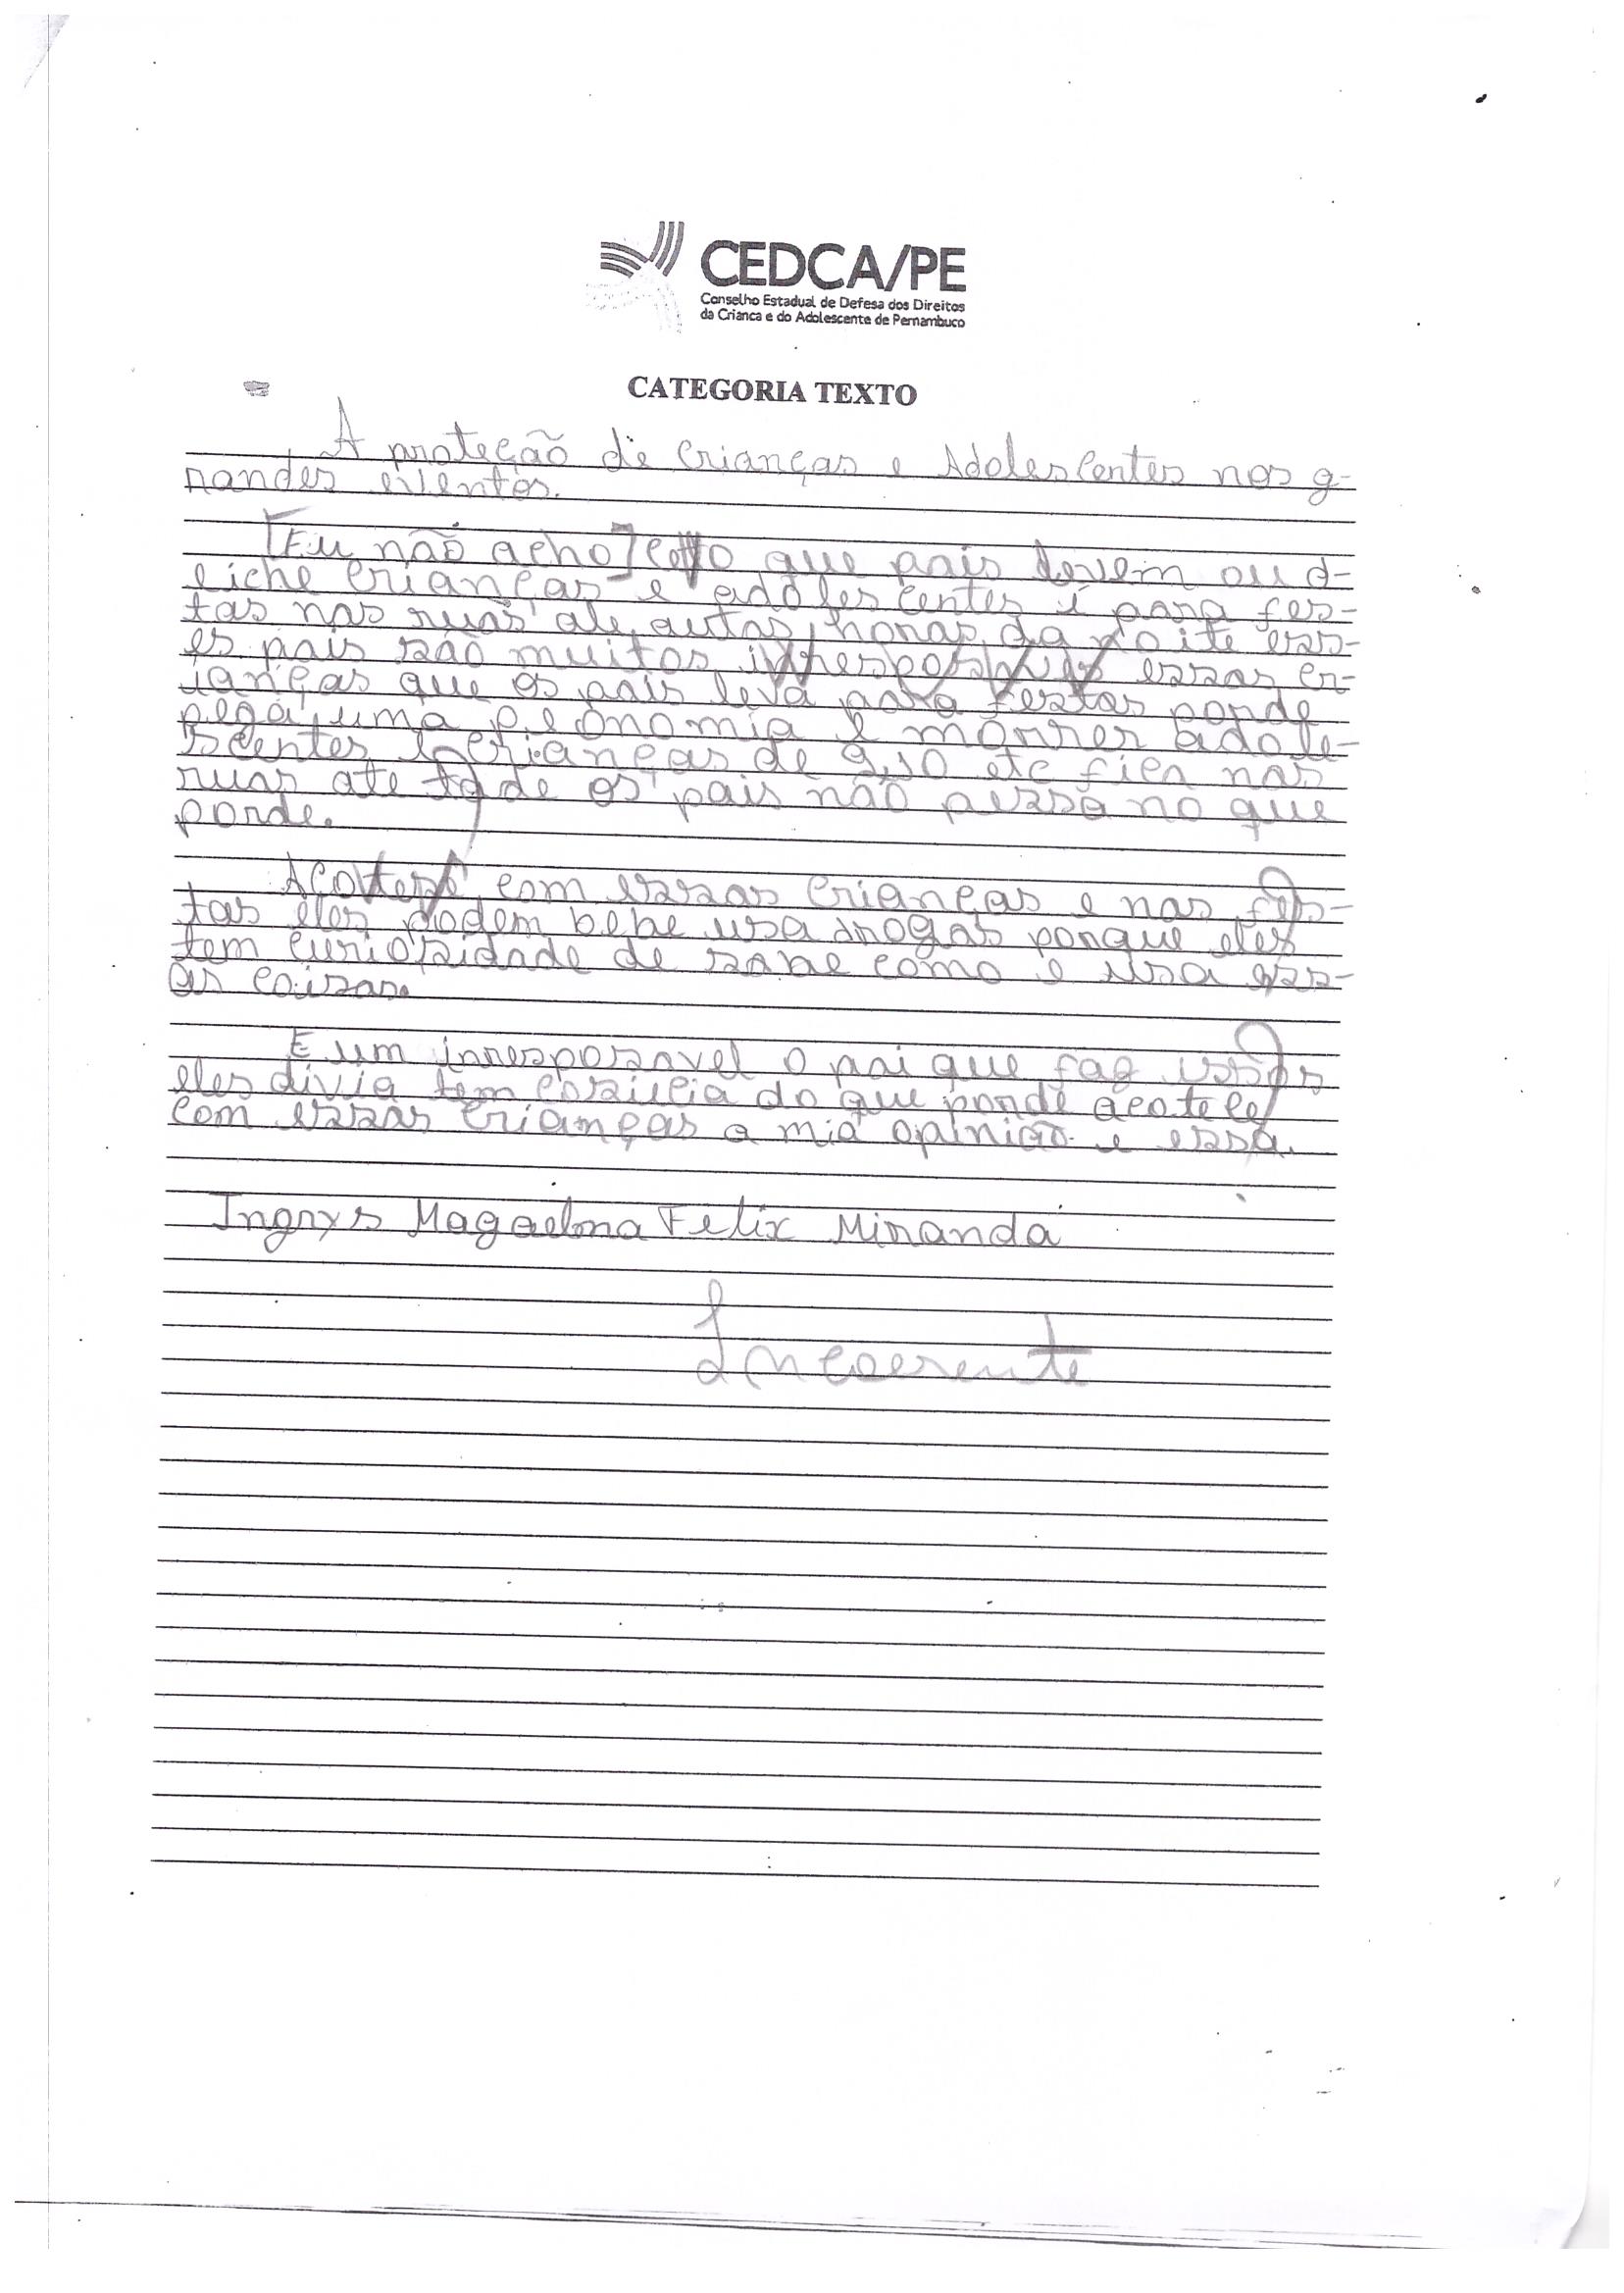 CEDCA/PE
Conselho Estadual de Defesa dos Direitos
da Crianca e do Adolescente de Pernambuco
CATEGORIA TEXTO
A proteção de crianças e Adolescentes nos g-
randes eventos.
[Eu não acho] que pais devem ou d-
eiche crianças e adolescentes i para fes-
tas nas ruas ate autas horas da noite ess-
es pais são muitos essas cr-
ianças que os pais leva para festas porde
pega uma peonomia e morrer adole-
scentes e crianças de 9,10 etc fica nas
ruas ate tade os pais não pessa no que
porde.
com essas crianças e nas fes-
tas eles podem bebe usa drogas porque eles
tem curiosidade de sabe como e usa ess-
as coisas.
E um irresposavel o pai que faz issos
eles divia tem cosiecia do que porde acotece
com essas crianças a mia opinião e essa.
Ingrys Magaelma Felix Miranda
Incoerente